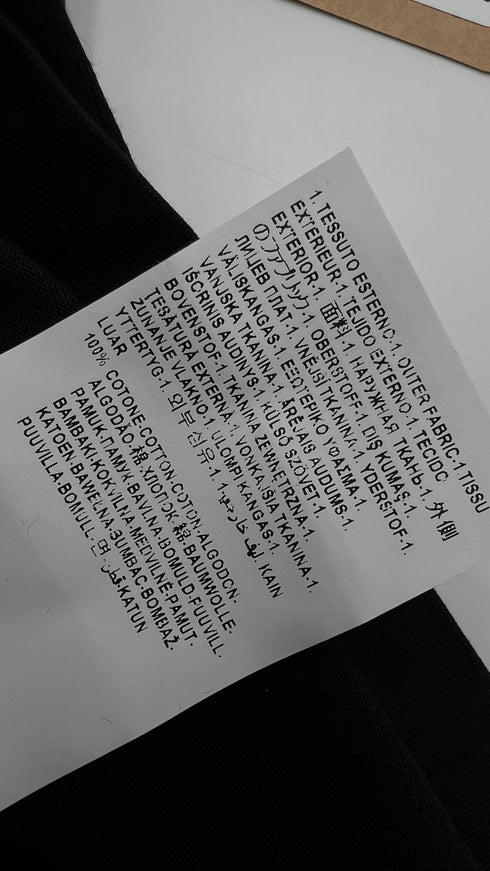 1. TESSUTO ESTERNO·1. OUTER FABRIC·1 TISSU
EXTÉRIEUR·1. TEJIDO EXTERNO·1. TECIDO
EXTERIOR·1. 面料·1. НАРУЖНАЯ ТКАНЬ·1. 外側
①ファブリック· OBERSTOFF·1. DIŞ KUMAŞ·1.
ЛИЦЕВ ПЛАТ·1. VNĚJŠÍ TKANINA·1. YDERSTOF·1
VÄLISKANGAS·1. ΕΞΩΤΕΡΙΚΟ ΥΦΑΣΜΑ·1.
VANJSKA TKANINA·1. ĀRĒJAIS AUDUMS·1.
IŠORINIS AUDINYS·1. KÜLSŐ SZÖVET·1.
BOVENSTOF·1. TKANINA ZEWNĘTRZNA·1.
ȚESĂTURĂ EXTERNĂ·1. VONKAJŠIA TKANINA·1.
ZUNANJE VLAKNO·1. ULOMPI KANGAS·1.
YTTERTYG·1. 외부 1. KAIN
LUAR
100% COTONE·COTTON·COTON·ALGODÓN·
ALGODÃO·棉·ХЛОПОК·綿·BAUMWOLLE·
PAMUK·ПАМУК·BAVLNA·BOMULD·PUUVILL·
ΒΑΜΒΑΚΙ·KOKVILNA·MEDVILNĖ·PAMUT·
KATOEN·BAWEŁNA·BUMBAC·BOMBAŽ·
PUUVILLA·BOMULL·면·قطن·KATUN